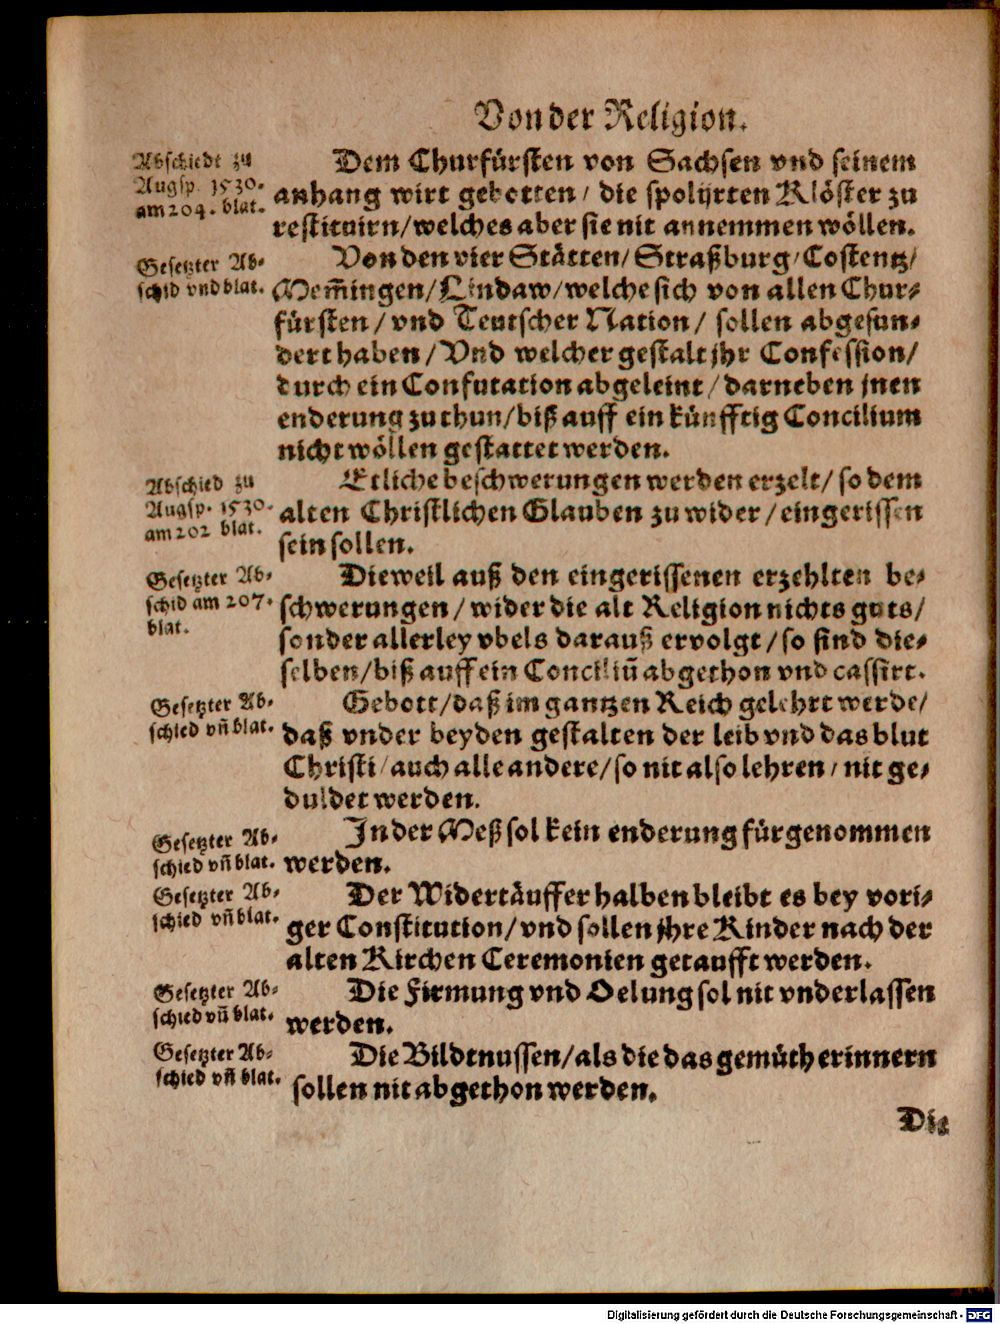 Von der Religion.
Abschiedt zu
Augsp. 1530.
am 204. blat.
Dem Churfürsten von Sachsen vnd seinem
anhang wirt gebotten / die spolijrten Klöster zu
restituirn/welches aber sie nit annemmen wöllen.
Gesetzter Ab-
schid vnd blat.
Von den vier Stätten/Straßburg/Costentz/
Mem̃ingen/Lindaw/welche sich von allen Chur-
fürsten / vnd Teutscher Nation / sollen abgesun-
dert haben / Vnd welcher gestalt jhr Confession/
durch ein Confutation abgeleint / darneben jnen
enderung zu thun/biß auff ein künfftig Concilium
nicht wöllen gestattet werden.
Abschied zu
Augsp. 1530.
am 202 blat.
Etliche beschwerungen werden erzelt/ so dem
alten Christlichen Glauben zu wider / eingerissen
sein sollen.
Gesetzter Ab-
schid am 207.
blat.
Dieweil auß den eingerissenen erzehlten be-
schwerungen / wider die alt Religion nichts guts/
sonder allerley vbels darauß ervolgt / so sind die-
selben/biß auff ein Conciliũ abgethon vnd cassirt.
Gesetzter Ab-
schied vñ blat.
Gebott/daß im gantzen Reich gelehrt werde/
daß vnder beyden gestalten der leib vnd das blut
Christi / auch alle andere/so nit also lehren / nit ge-
duldet werden.
Gesetzter Ab-
schied vñ blat.
In der Meß sol kein enderung fürgenommen
werden.
Gesetzter Ab-
schied vñ blat.
Der Widertäuffer halben bleibt es bey vori-
ger Constitution/vnd sollen jhre Kinder nach der
alten Kirchen Ceremonien getaufft werden.
Gesetzter Ab-
schied vñ blat.
Die Firmung vnd Oelung sol nit vnderlassen
werden.
Gesetzter Ab-
schied vñ blat.
Die Bildtnussen/als die das gemüth erinnern
sollen nit abgethon werden.
Die
Digitalisierung gefördert durch die Deutsche Forschungsgemeinschaft - DFG